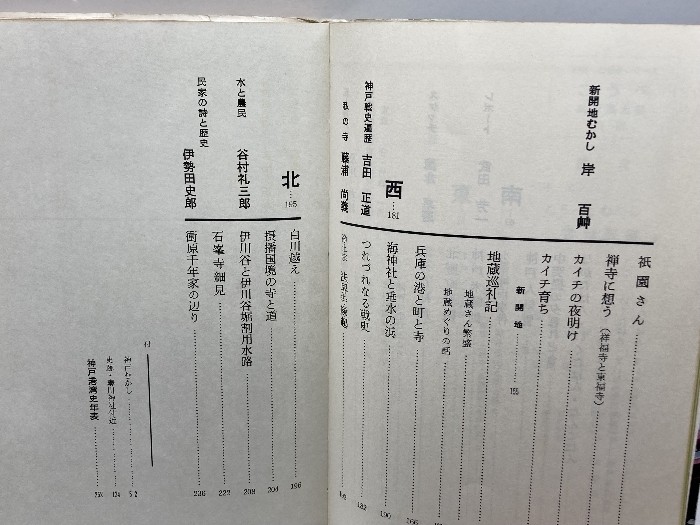 祇園さん
禅寺に想う（祥福寺と東福寺）
カイチの夜明け
新開地むかし 岸 百艸
カイチ育ち
新開地 155
地蔵巡礼記
地蔵さん繁盛
地蔵めぐりの話
兵庫の港と町と寺 166
西 181
海神社と垂水の浜 190
神戸戦史遍歴 吉田 正道
つれづれなる戦史 182
の寺 藤浦 尚義
北 195
白川越え 196
摂播国境の寺と道 204
水と農民 谷村礼三郎
伊川谷と伊川谷堀割用水路 208
石峯寺細見 222
民家の詩と歴史 伊勢田史郎
衝原千年家の辺り 236
付
神戸むかし 52
124
神戸港湾史年表 252